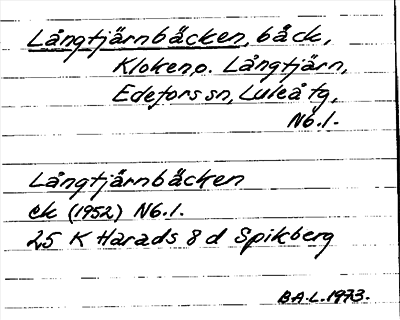 Långtjärnbäcken, bäck,
Kloken, o. Långtjärn,
Edefors sn, Luleå tg,
Nb. l.
Långtjärnbäcken
ek (1952) Nb. l.
25 K Harads 8 d Spikberg
B.A.L. 1973.